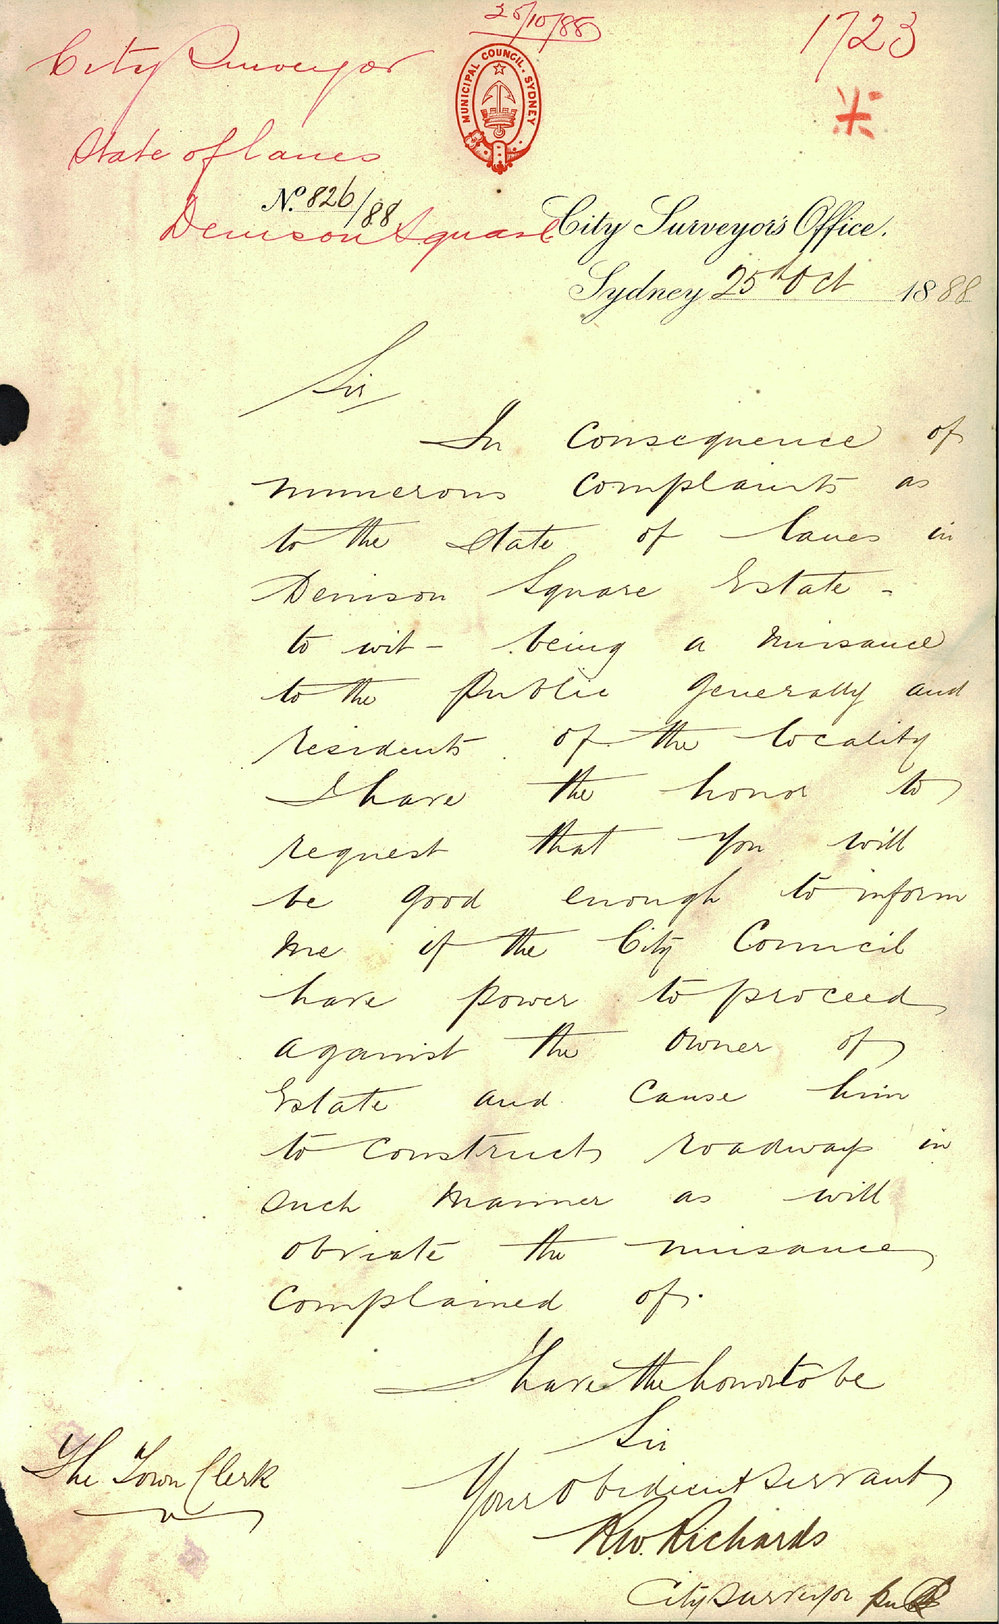 25/10/88
1723
City Surveyor
MUNICIPAL COUNCIL. SYDNEY
State of lanes
No. 826/88
Denison Square
City Surveyor's Office.
Sydney 25th Oct 1888
Sir
In consequence of
numerous complaints as
to the state of lanes in
Denison Square Estate -
to wit - being a nuisance
to the public generally and
residents of the locality
I have the honor to
request that you will
be good enough to inform
me if the City Council
have power to proceed
against the owner of
Estate and cause him
to construct roadways in
such manner as will
obviate the nuisance
complained of.
I have the honor to be
Sir
Your obedient servant
R.W. Richards
City Surveyor
The Town Clerk